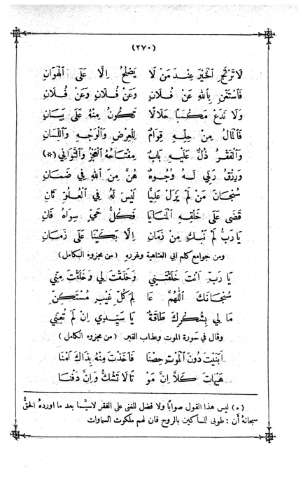 (٢٧٠)
لَا تَرْتَجِ الْخَيْرَ عِنْدَ مَنْ لَا يَصْلُحُ إِلَّا عَلَى الْهَوَانِ
فَاسْتَغْنِ بِاللهِ عَنْ فُلَانٍ وَعَنْ فُلَانٍ وَعَنْ فُلَانِ
وَلَا تَدَعْ مَكْسَبًا حَلَالًا تَكُونُ مِنْهُ عَلَى بَيَانِ
فَالْمَالُ مِنْ حِلِّهِ قِوَامٌ لِلْعِرْضِ وَالْوَجْهِ وَاللِّسَانِ
وَالْفَقْرُ ذُلٌّ عَلَيْهِ بَابٌ مِفْتَاحُهُ الْعَجْزُ وَالتَّوَانِي (*)
وَرِزْقُ رَبِّي لَهُ وُجُوهٌ هُنَّ مِنَ اللهِ فِي ضَمَانِ
سُبْحَانَ مَنْ لَمْ يَزَلْ عَلِيًّا لَيْسَ لَهُ فِي الْعُلُوِّ ثَانِ
قَضَى عَلَى خَلْقِهِ الْمَنَايَا فَكُلُّ حَيٍّ سِوَاهُ فَانِ
يَا رَبِّ لَمْ نَبْكِ مِنْ زَمَانٍ إِلَّا بَكَيْنَا عَلَى زَمَانِ
ومن جوامع كلم ابي العتاهية وغرره (من مجزوء الكامل)
يَا رَبِّ أَنْتَ خَلَقْتَنِي وَخَلَقْتَ لِي وَخَلَقْتَ مِنِّي
سُبْحَانَكَ اللّٰهُمَّ عَا لِمَ كُلِّ غَيْبٍ مُسْتَكِنِّ
مَا لِي بِشُكْرِكَ طَاقَةٌ يَا سَيِّدِي إِنْ لَمْ تُعِنِّي
وقال في صورة الموت وطالب الفقير (من مجزوء الكامل)
أَبَنَيْتَ دُونَ الْمَوْتِ حِصْنَا فَأَخَذْتَ مِنْهُ بِذَاكَ أَمْنَا
هَيْهَاتَ كَلَّا إِنَّ مَوْ تًا لَا تَشُكُّ وَإِنَّ دَفْنَا
(*) ليس هذا القول صوابًا ولا فضل للغنى على الفقر لاسيما بعد ما اورده الحق
سبحانه أن : طوبى للمساكين بالروح فان لهم ملكوت السماوات